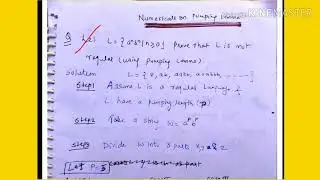 KINEMASTER
Numericals on Pumping Lemma
Q Let L = { aⁿbⁿ | n≥0 } prove that L is not
regular (using pumping lemma).
Solution L = { ε, ab, aabb, aaabbb, ----- }
Step1 Assume L is a regular Language &
L have a pumping length (P)
Step2 Take a string w = aᵖbᵖ
Step3 Divide w into 3 parts x, y & z
Let P=3